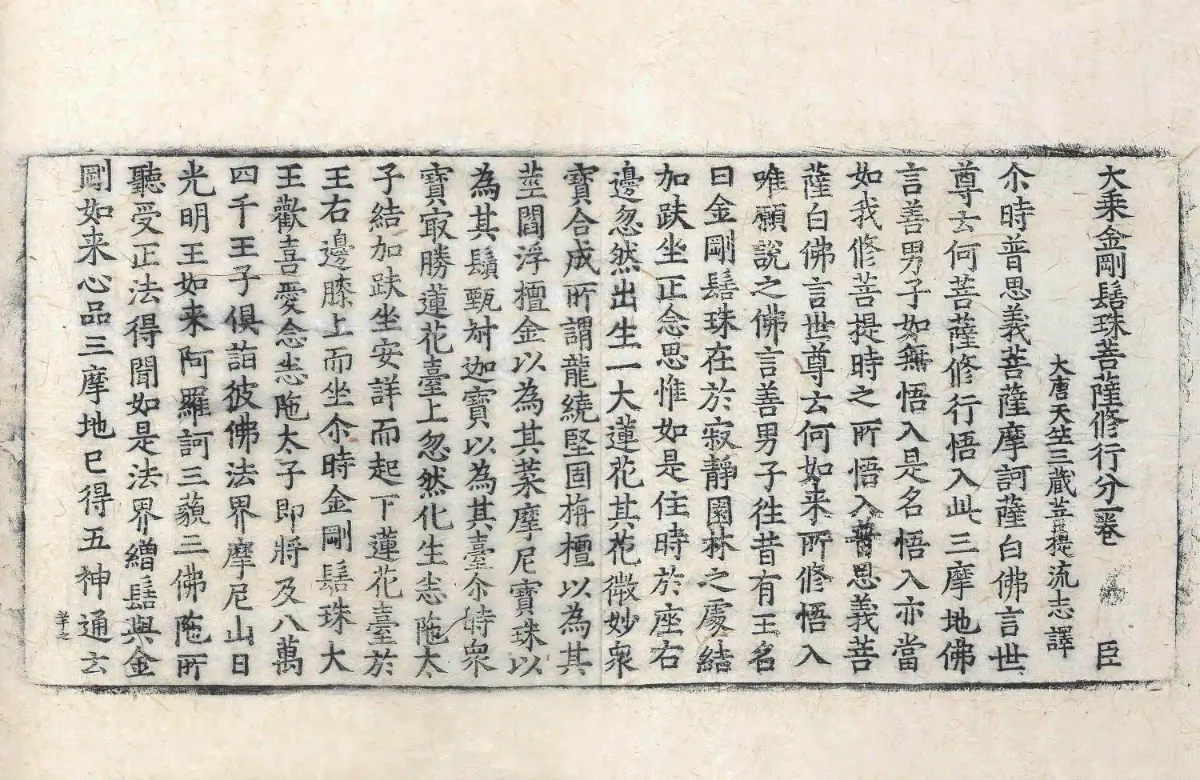 大乘金剛髻珠菩薩修行分一卷　臣
大唐天竺三藏菩提流志譯
尒時普思義菩薩摩訶薩白佛言世
尊云何菩薩修行悟入此三摩地佛
言善男子如無悟入是名悟入亦當
如我修菩提時之所悟入普思義菩
薩白佛言世尊云何如来所修悟入
唯願說之佛言善男子往昔有王名
曰金剛髻珠在於寂靜園林之處結
加趺坐正念思惟如是住時於座右
邊忽然出生一大蓮花其花微妙衆
寶合成所謂龍繞堅固栴檀以為其
莖閻浮檀金以為其葉摩尼寶珠以
為其鬚甄叔迦寶以為其臺尒時衆
寶冣勝蓮花臺上忽然化生悉陁太
子結加趺坐安詳而起下蓮花臺於
王右邊膝上而坐尒時金剛髻珠大
王歡喜愛念悉陁太子即將及八萬
四千王子俱詣彼佛法界摩尼山日
光明王如来阿羅訶三藐三佛陁所
聽受正法得聞如是法界繒髻與金
剛如来心品三摩地已得五神通云